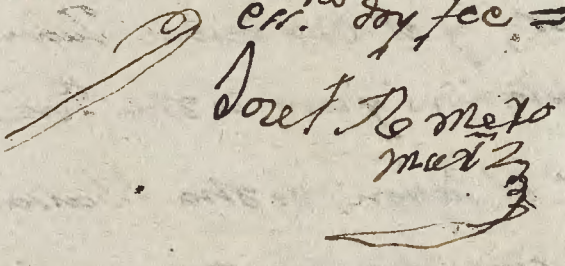 en.to doy fee =
Joset Romero
marñz